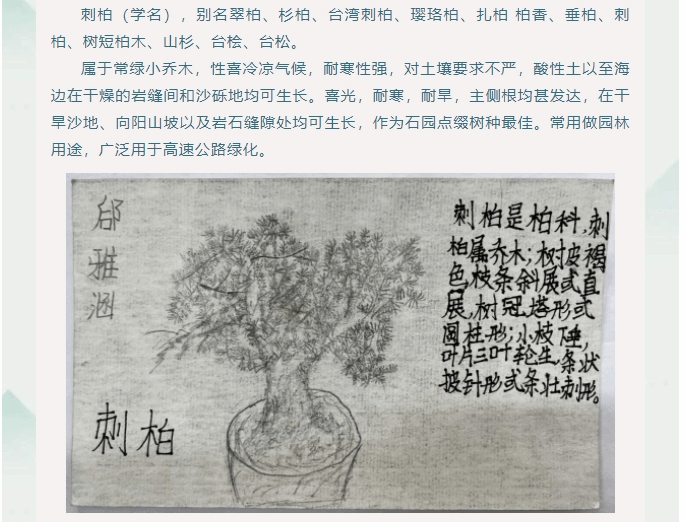 刺柏（学名），别名翠柏、杉柏、台湾刺柏、璎珞柏、扎柏 柏香、垂柏、刺
柏、树短柏木、山杉、台桧、台松。
属于常绿小乔木，性喜冷凉气候，耐寒性强，对土壤要求不严，酸性土以至海
边在干燥的岩缝间和沙砾地均可生长。喜光，耐寒，耐旱，主侧根均甚发达，在干
旱沙地、向阳山坡以及岩石缝隙处均可生长，作为石园点缀树种最佳。常用做园林
用途，广泛用于高速公路绿化。
邸雅涵
刺柏
刺柏是柏科,刺
柏属乔木;树披褐
色,枝条斜展或直
展,树冠塔形或
圆柱形;小枝下垂,
叶片三叶轮生,条状
披针形或条壮刺形。